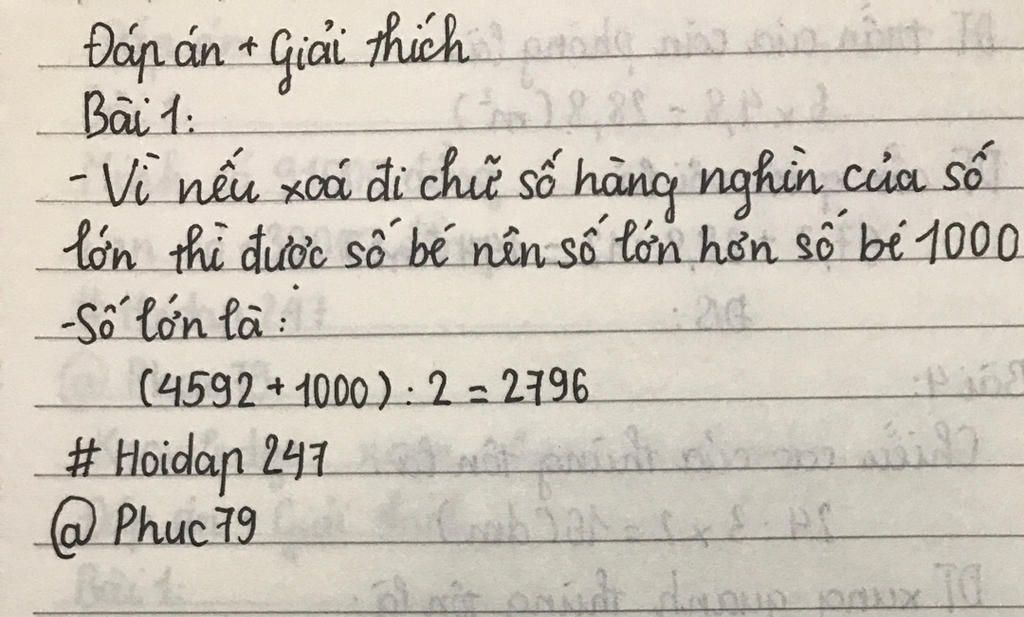 Đáp án + Giải thích
Bài 1:
- Vì nếu xoá đi chữ số hàng nghìn của số
lớn thì được số bé nên số lớn hơn số bé 1000
- Số lớn là :
(4592 + 1000) : 2 = 2796
# Hoidap 247
@ Phuc79
ĐS :
Bài 4:
24 : 3 x 2 = 16 (dm)
6 x 4,8 = 28,8 (m²)